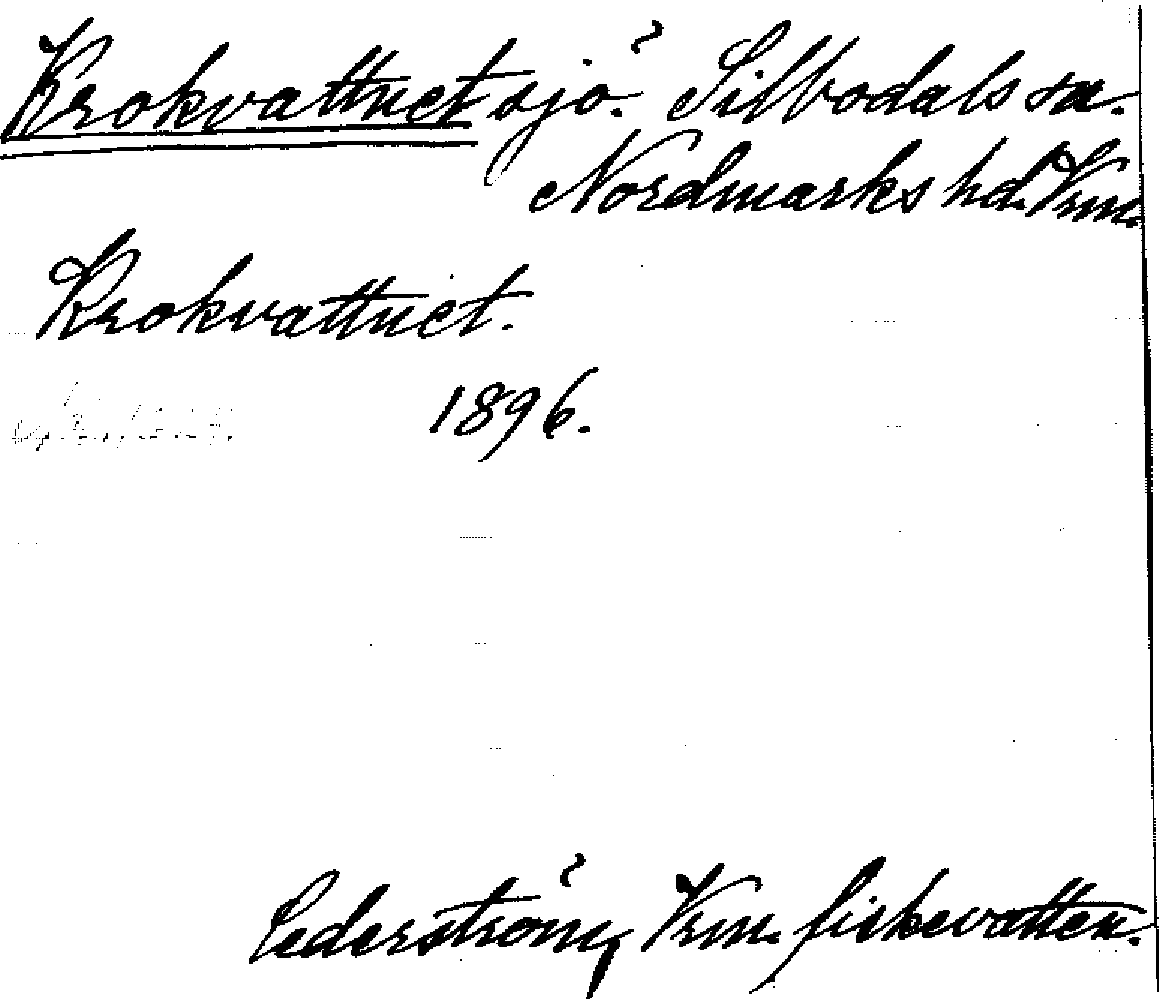 Krokvattnet sjö. Silbodals sn.
Nordmarks hd. Vrm.
Krokvattnet.
1896.
Cederström, Vrm. fiskevatten.